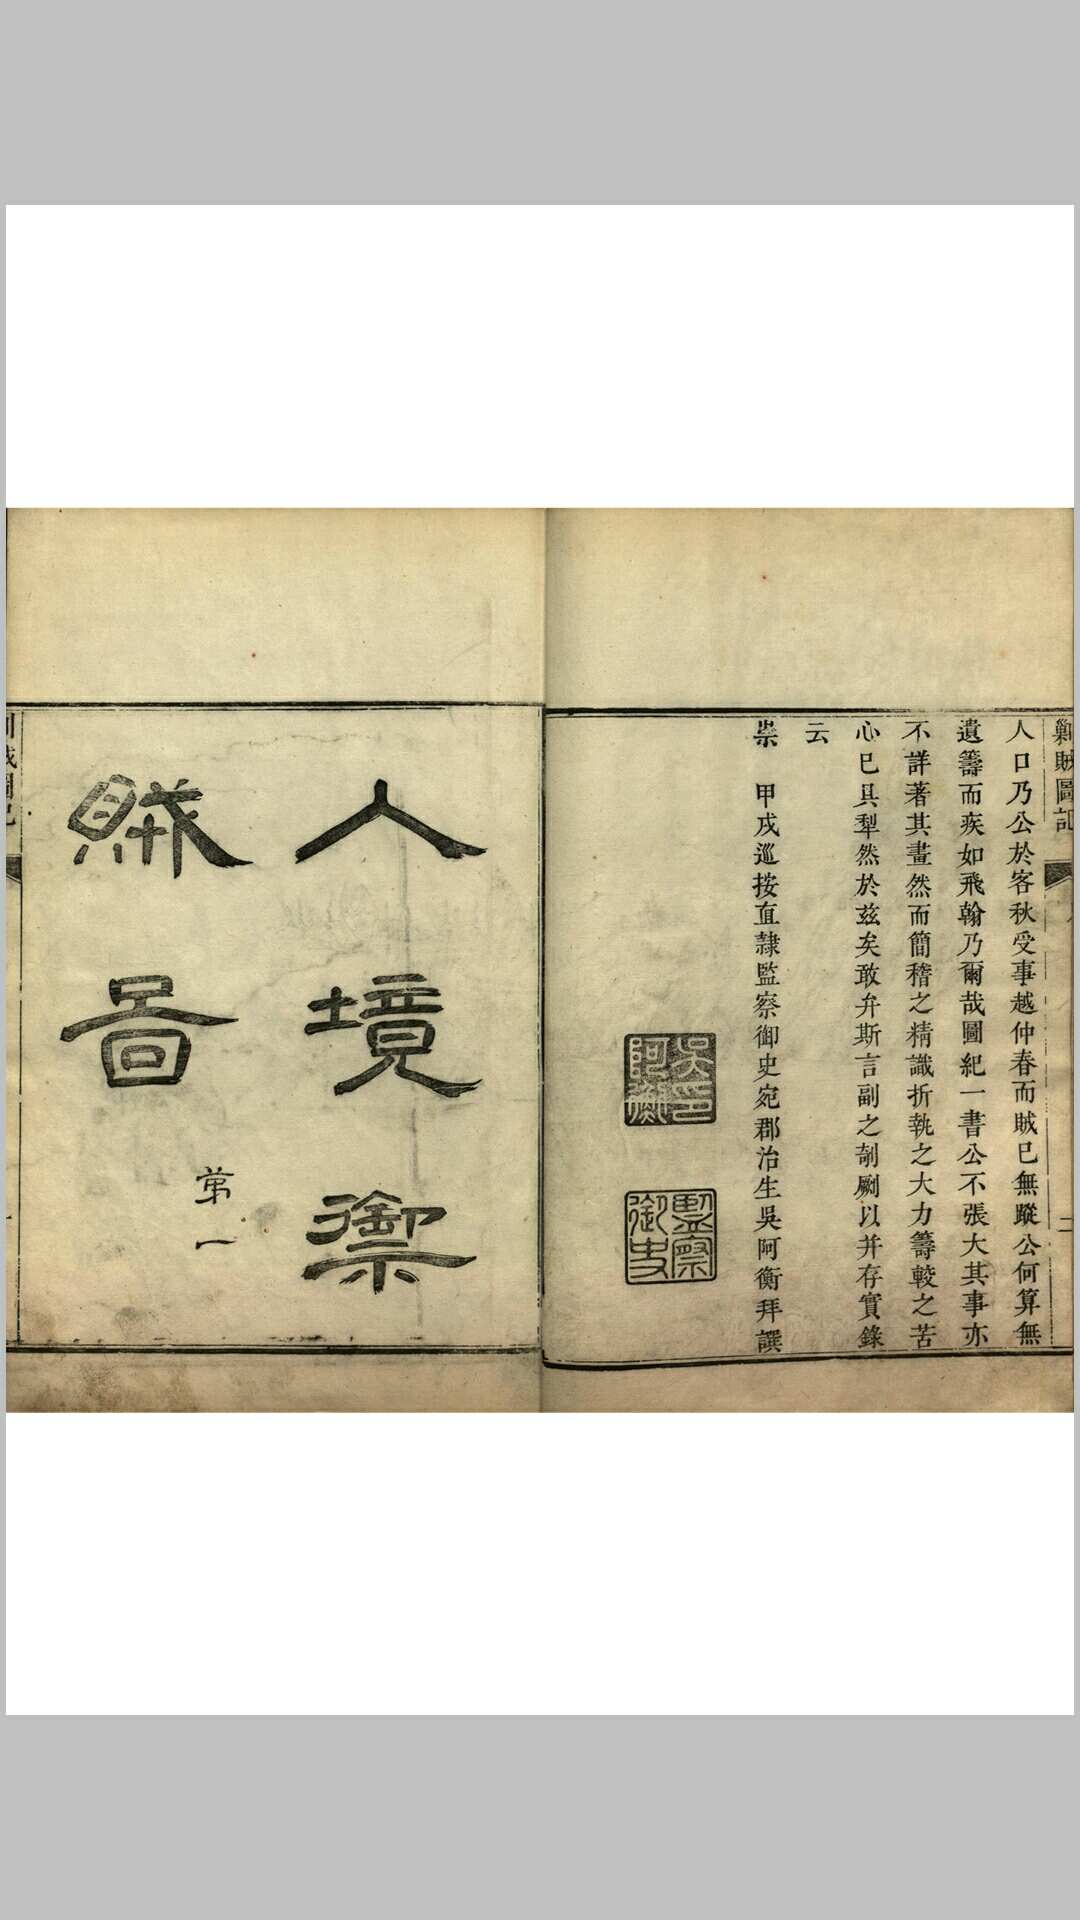 剿賊圖記
二
人口乃公於客秋受事越仲春而賊已無蹤公何算無
遺籌而疾如飛翰乃爾哉圖紀一書公不張大其事亦
不詳著其畫然而簡稽之精識折執之大力籌較之苦
心已具犁然於茲矣敢弁斯言副之剞劂以并存實錄
云
崇　甲戌巡按直隷監察御史宛郡治生吳阿衡拜譔
吳阿衡印
監察御史
入境禦
賊圖
第一